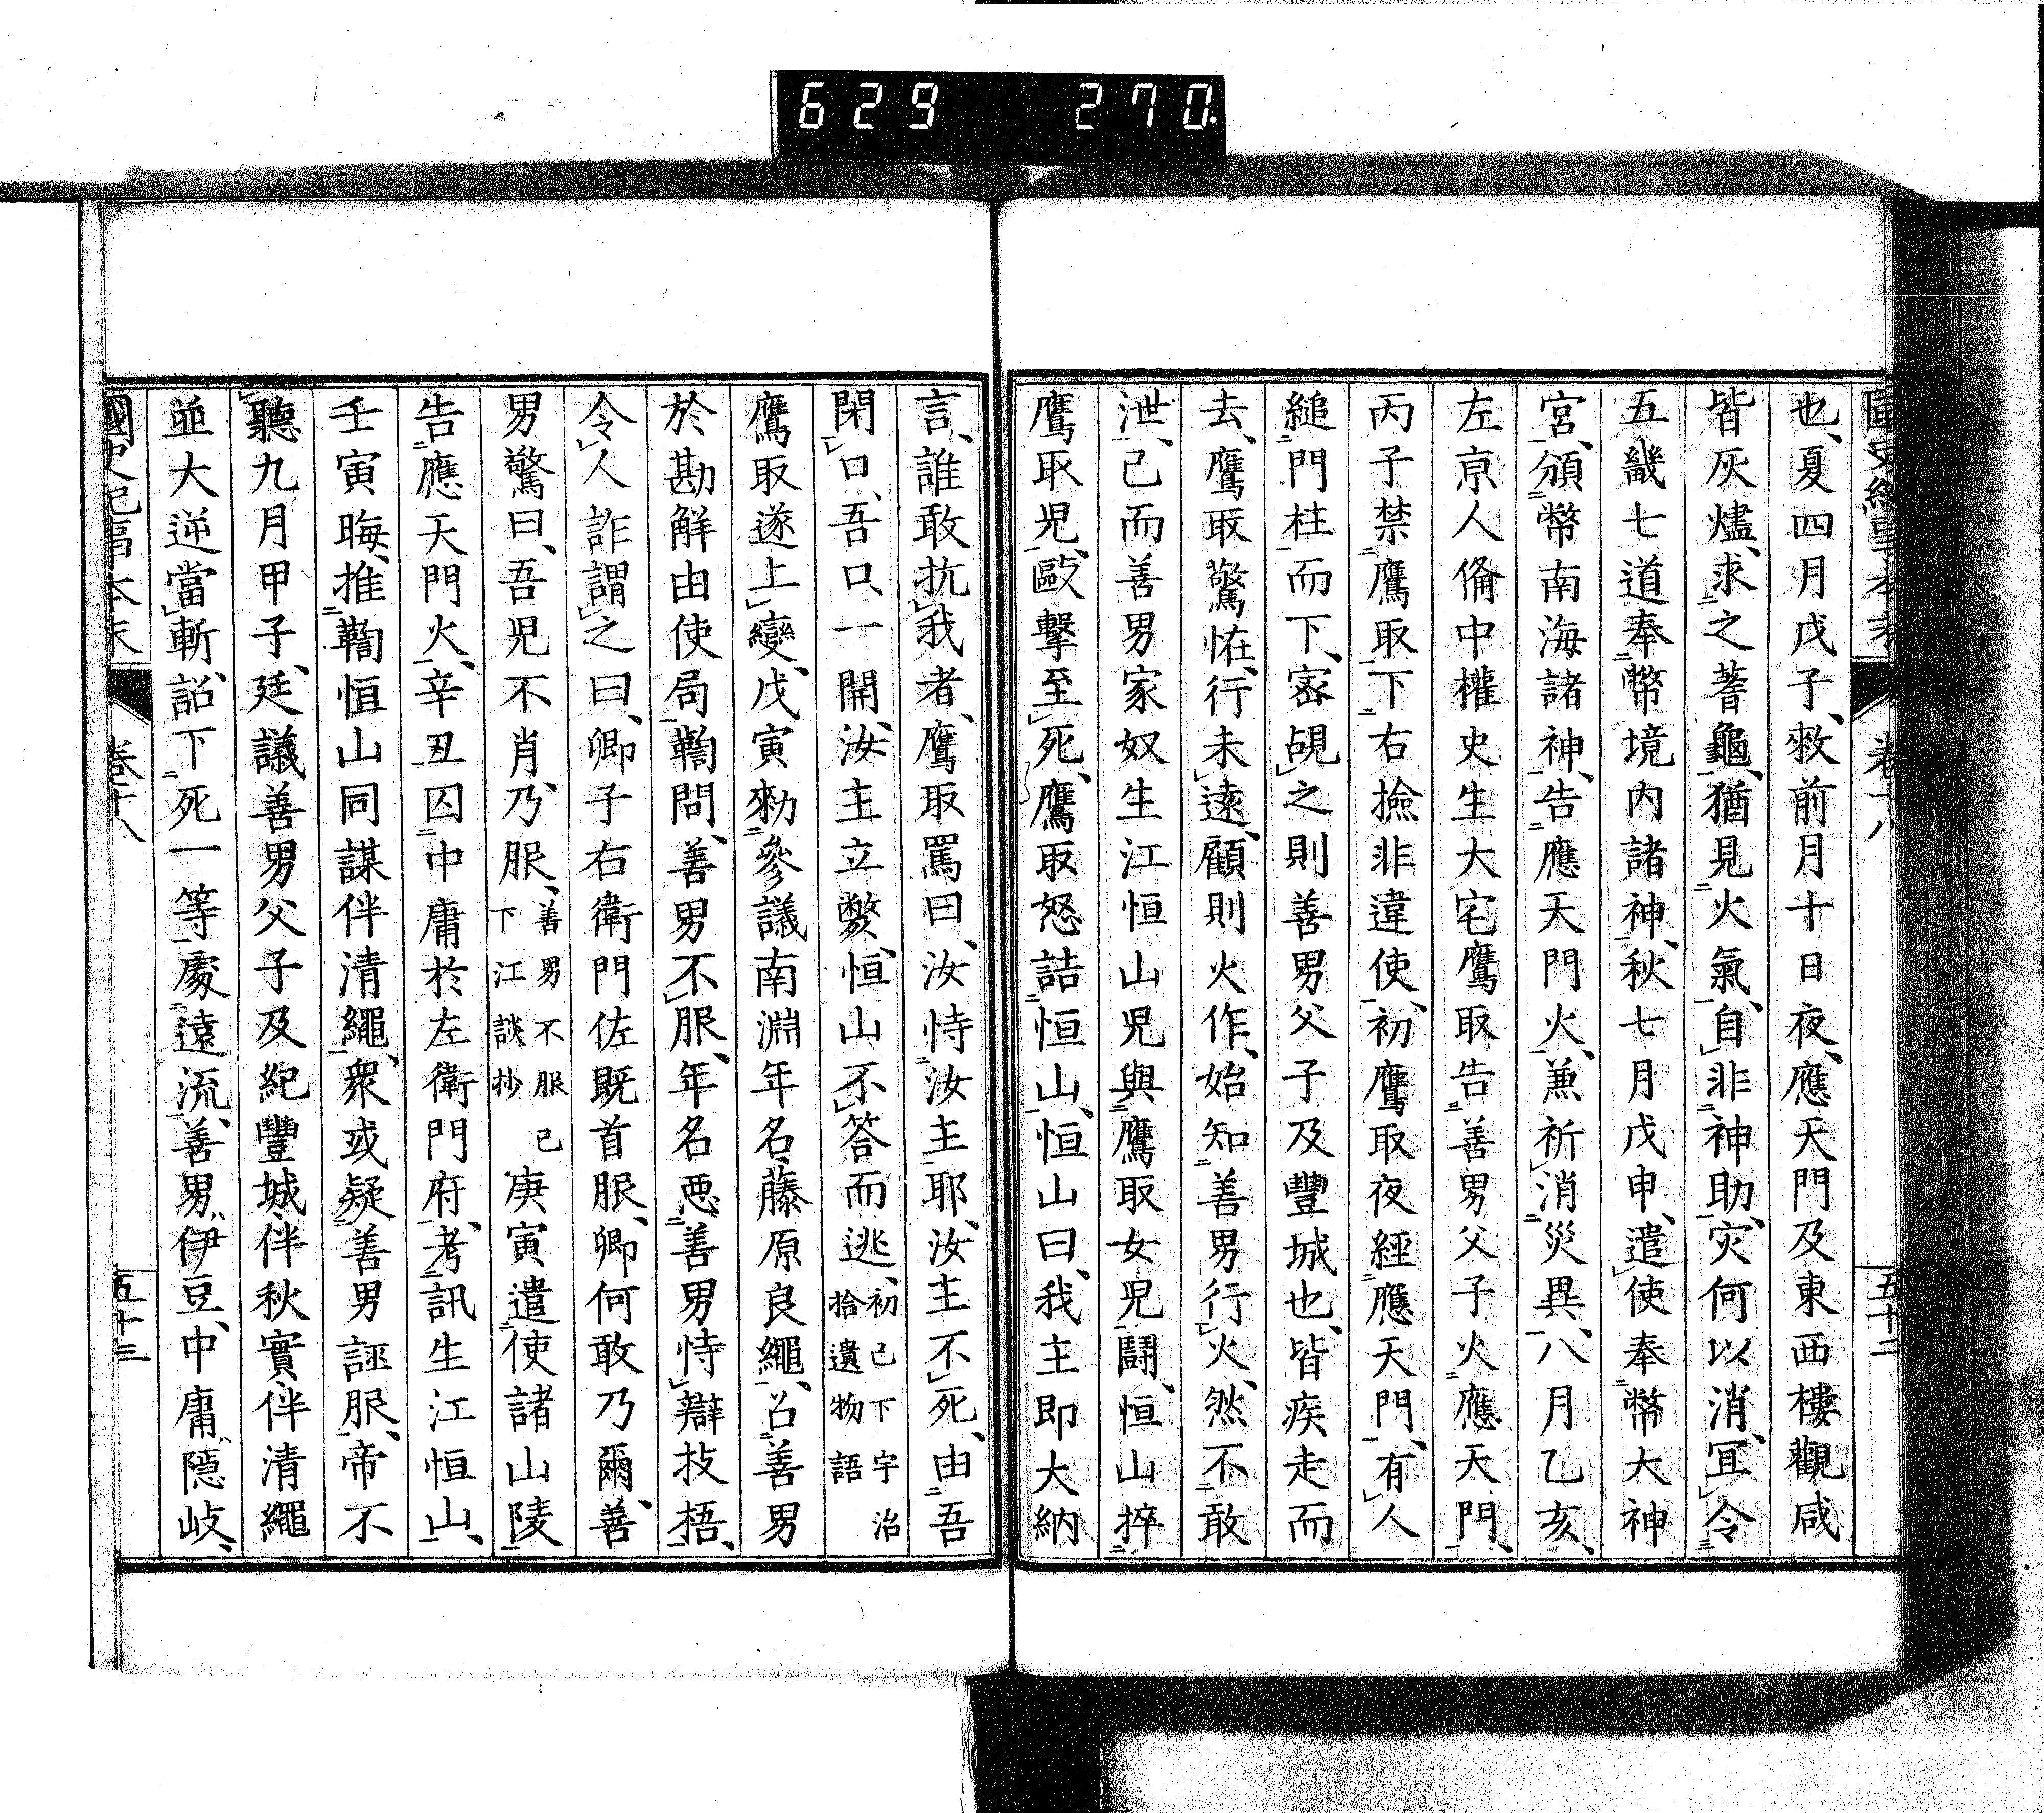 629 270
國史紀事本末 卷十八 五十二
也、夏四月戊子、敕前月十日夜、應天門及東西樓觀咸
皆灰燼、求之蓍龜、猶見火氣、自非神助、灾何以消、冝令
五畿七道奉幣境内諸神、秋七月戊申、遣使奉幣大神
宮、頒幣南海諸神、告應天門火、兼祈消災異、八月乙亥、
左京人俻中權史生大宅鷹取告善男父子火應天門、
丙子禁鷹取、下右撿非違使、初鷹取夜經應天門、有人
縋門柱而下、宻覘之則善男父子及豐城也、皆疾走而
去、鷹取驚恠、行未遠、顧則火作、始知善男行火、然不敢
泄、已而善男家奴生江恒山児與鷹取女児鬪、恒山捽
鷹取児、毆擊至死、鷹取怒詰恒山、恒山曰、我主即大納
言、誰敢抗我者、鷹取罵曰、汝恃汝主耶、汝主不死、由吾
閇口、吾口一開、汝主立斃、恒山不答而逃、初已下宇治拾遺物語
鷹取遂上變、戊寅勑參議南淵年名、藤原良繩、召善男
於勘解由使局鞫問、善男不服、年名惡善男恃辯技捂、
令人詐謂之曰、卿子右衛門佐既首服、卿何敢乃爾、善
男驚曰、吾児不肖、乃服、善男不服已下江談抄 庚寅遣使諸山陵
告應天門火、辛丑囚中庸於左衛門府、考訊生江恒山、
壬寅晦、推鞫恒山同謀伴清繩、衆或疑善男誣服、帝不
聽、九月甲子、廷議善男父子及紀豐城、伴秋實、伴清繩
並大逆當斬、詔下死一等、處遠流、善男伊豆、中庸隠岐、
國史紀事本末 卷十八 五十三